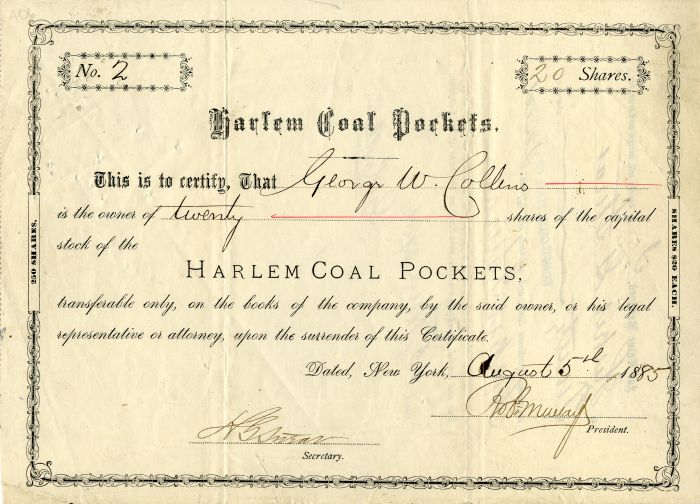 No. 2
20 Shares.
Harlem Coal Pockets.
This is to certify, That George W. Collins
is the owner of twenty shares of the capital
stock of the
HARLEM COAL POCKETS,
transferable only, on the books of the company, by the said owner, or his legal
representative or attorney, upon the surrender of this Certificate.
Dated, New York, August 5th, 1885
President.
Secretary.
250 SHARES.
SHARES $20 EACH.